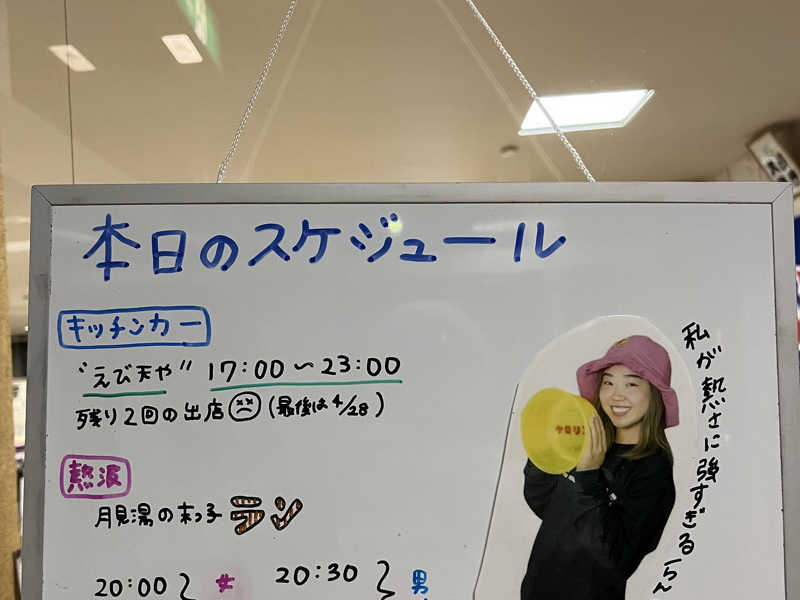 本日のスケジュール
キッチンカー
"えび天や" 17:00〜23:00
残り2回の出店(最後は4/28)
熱波
月見湯の末っ子ラン
20:00〜 女 20:30〜 男
私が熱さに強すぎるらん
ケロリン